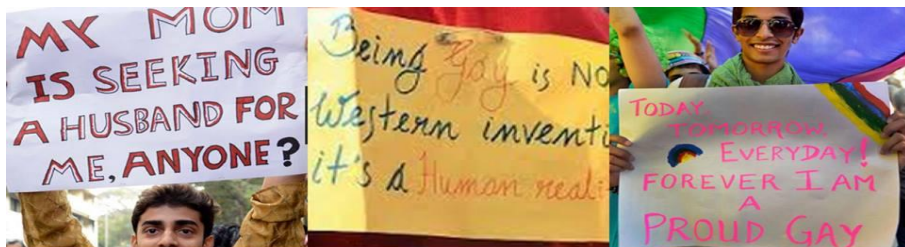 MY MOM
IS SEEKING
A HUSBAND FOR
ME, ANYONE?
Being Gay is NO
Western inventi
it's a Human reali
TODAY
TOMORROW,
EVERYDAY!
FOREVER I AM
A
PROUD GAY